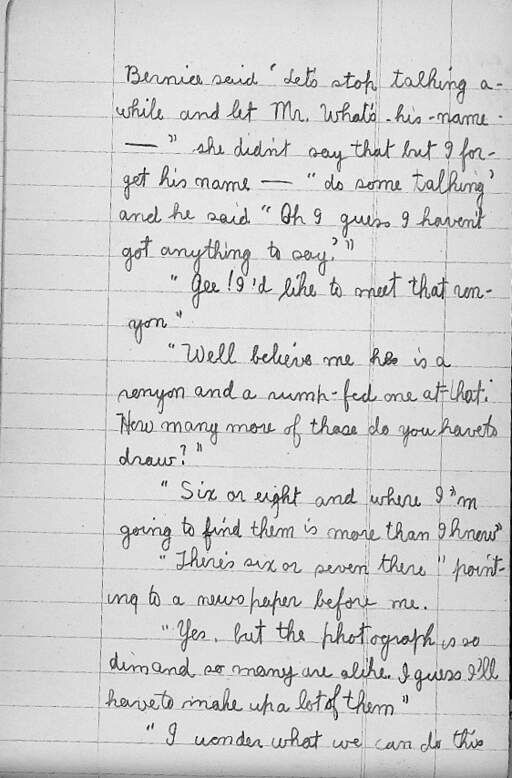 Bernice said ‘ Let's stop talking a-
while and let Mr. What's-his-name -
— " she didn't say that but I for-
get his name — " do some talking'
and he said " Oh I guess I haven't
got anything to say.' "
" Gee! I'd like to meet that ron-
yon "
" Well believe me he is a
ronyon and a rump-fed one at that.
How many more of those do you have to
draw? "
" Six or eight and where I'm
going to find them is more than I know "
" There's six or seven there " point-
ing to a newspaper before me.
" Yes, but the photograph is so
dim and so many are alike. I guess I'll
have to make up a lot of them "
" I wonder what we can do this